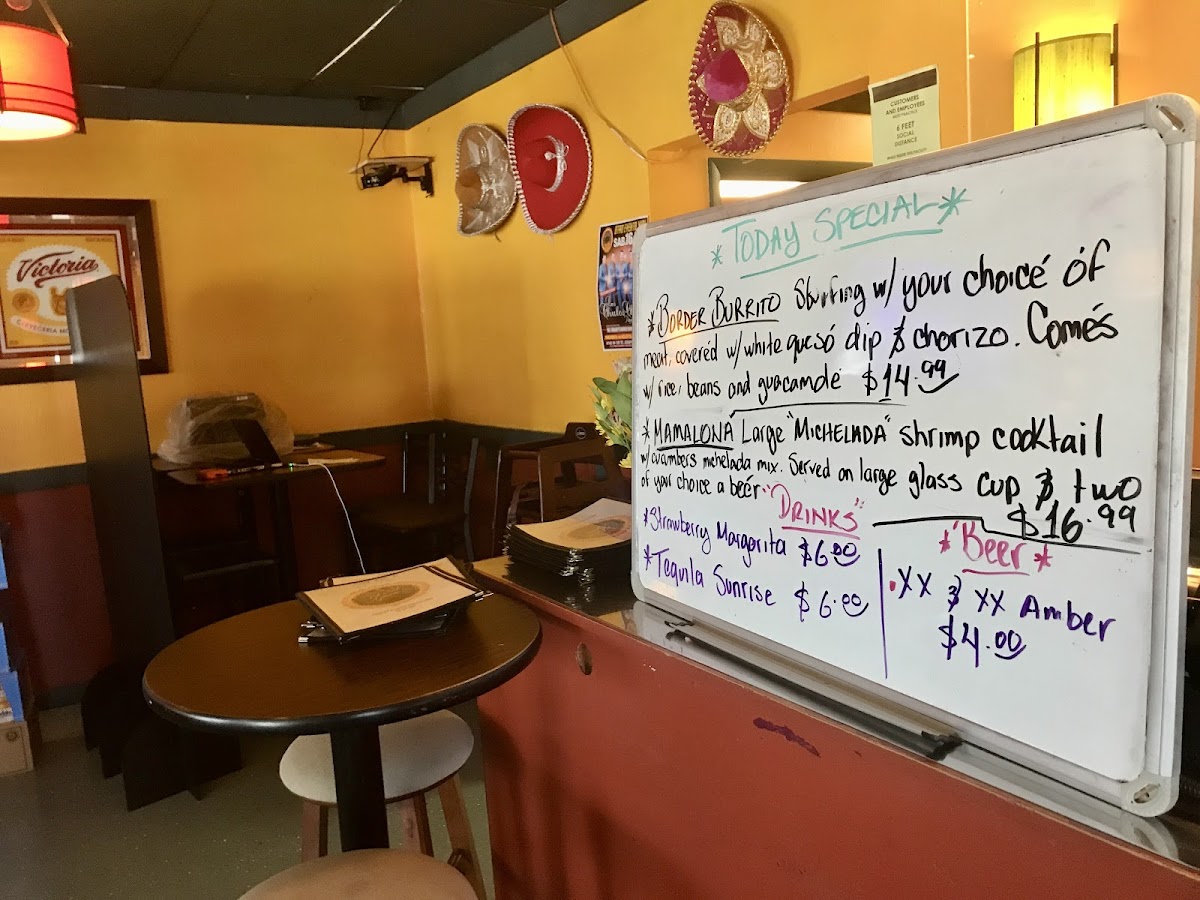 Victoria
CERVECERIA
SAB
CUSTOMERS
AND EMPLOYEES
6 FEET
SOCIAL
DISTANCE
* TODAY SPECIAL *
* BORDER BURRITO Sturfing w/ your choice of
meat, covered w/ white queso dip & chorizo. Comes
w/ rice, beans and guacamole $14.99
* MAMALONA Large "MICHELADA" shrimp cocktail
w/ cucumbers mehelada mix. Served on large glass cup & two
of your choice a beer. $16.99
"DRINKS"
* Strawberry Margarita $6.00
* Tequila Sunrise $6.00
* "Beer" *
• XX & XX Amber
$4.00